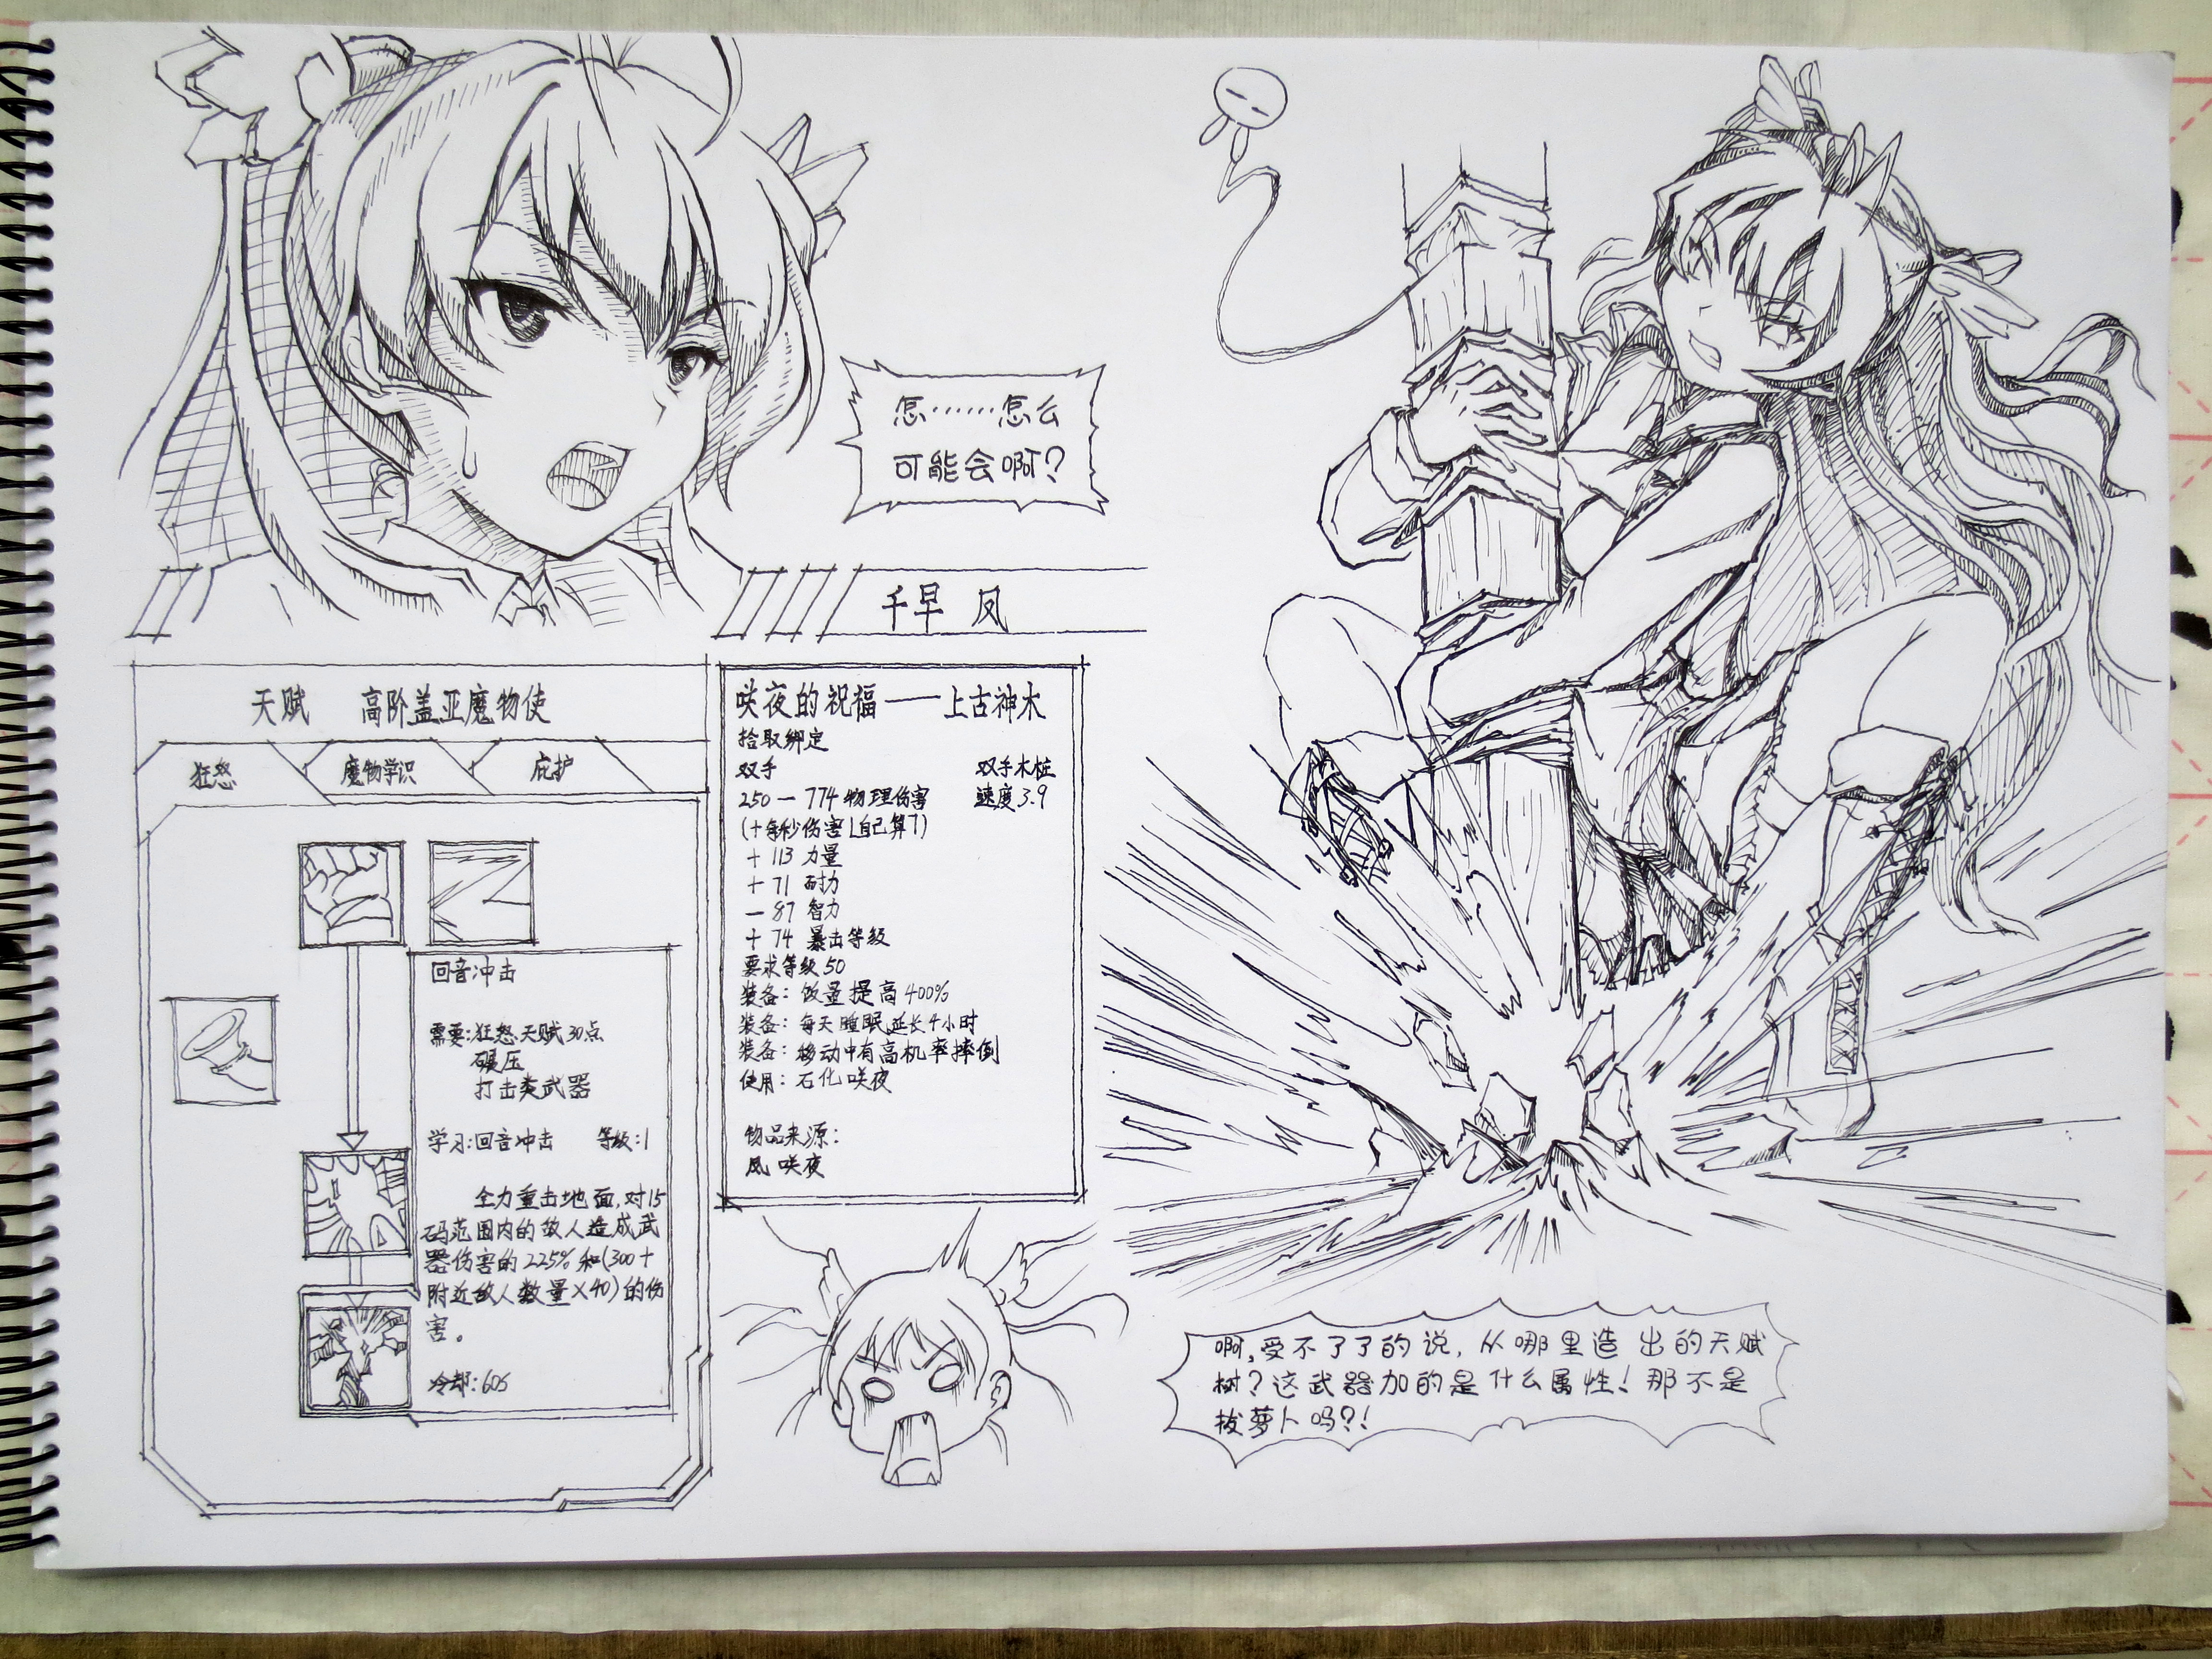 怎……怎么
可能会啊?
千早 凤
天赋 高阶盖亚魔物使
狂怒 魔物学识 庇护
回音冲击
需要:狂怒天赋30点
碾压
打击类武器
学习:回音冲击 等级:1
全力重击地面,对15
码范围内的敌人造成武
器伤害的225%和(300+
附近敌人数量×40)的伤
害。
冷却:60s
咲夜的祝福——上古神木
拾取绑定
双手 双手木桩
250—774物理伤害 速度3.9
(+每秒伤害[自己算])
+113 力量
+71 耐力
-87 智力
+74 暴击等级
要求等级50
装备:饭量提高400%
装备:每天睡眠延长4小时
装备:移动中有高机率摔倒
使用:石化咲夜
物品来源:
凤 咲夜
啊,受不了了的说,从哪里造出的天赋
树?这武器加的是什么属性!那不是
拔萝卜吗?!